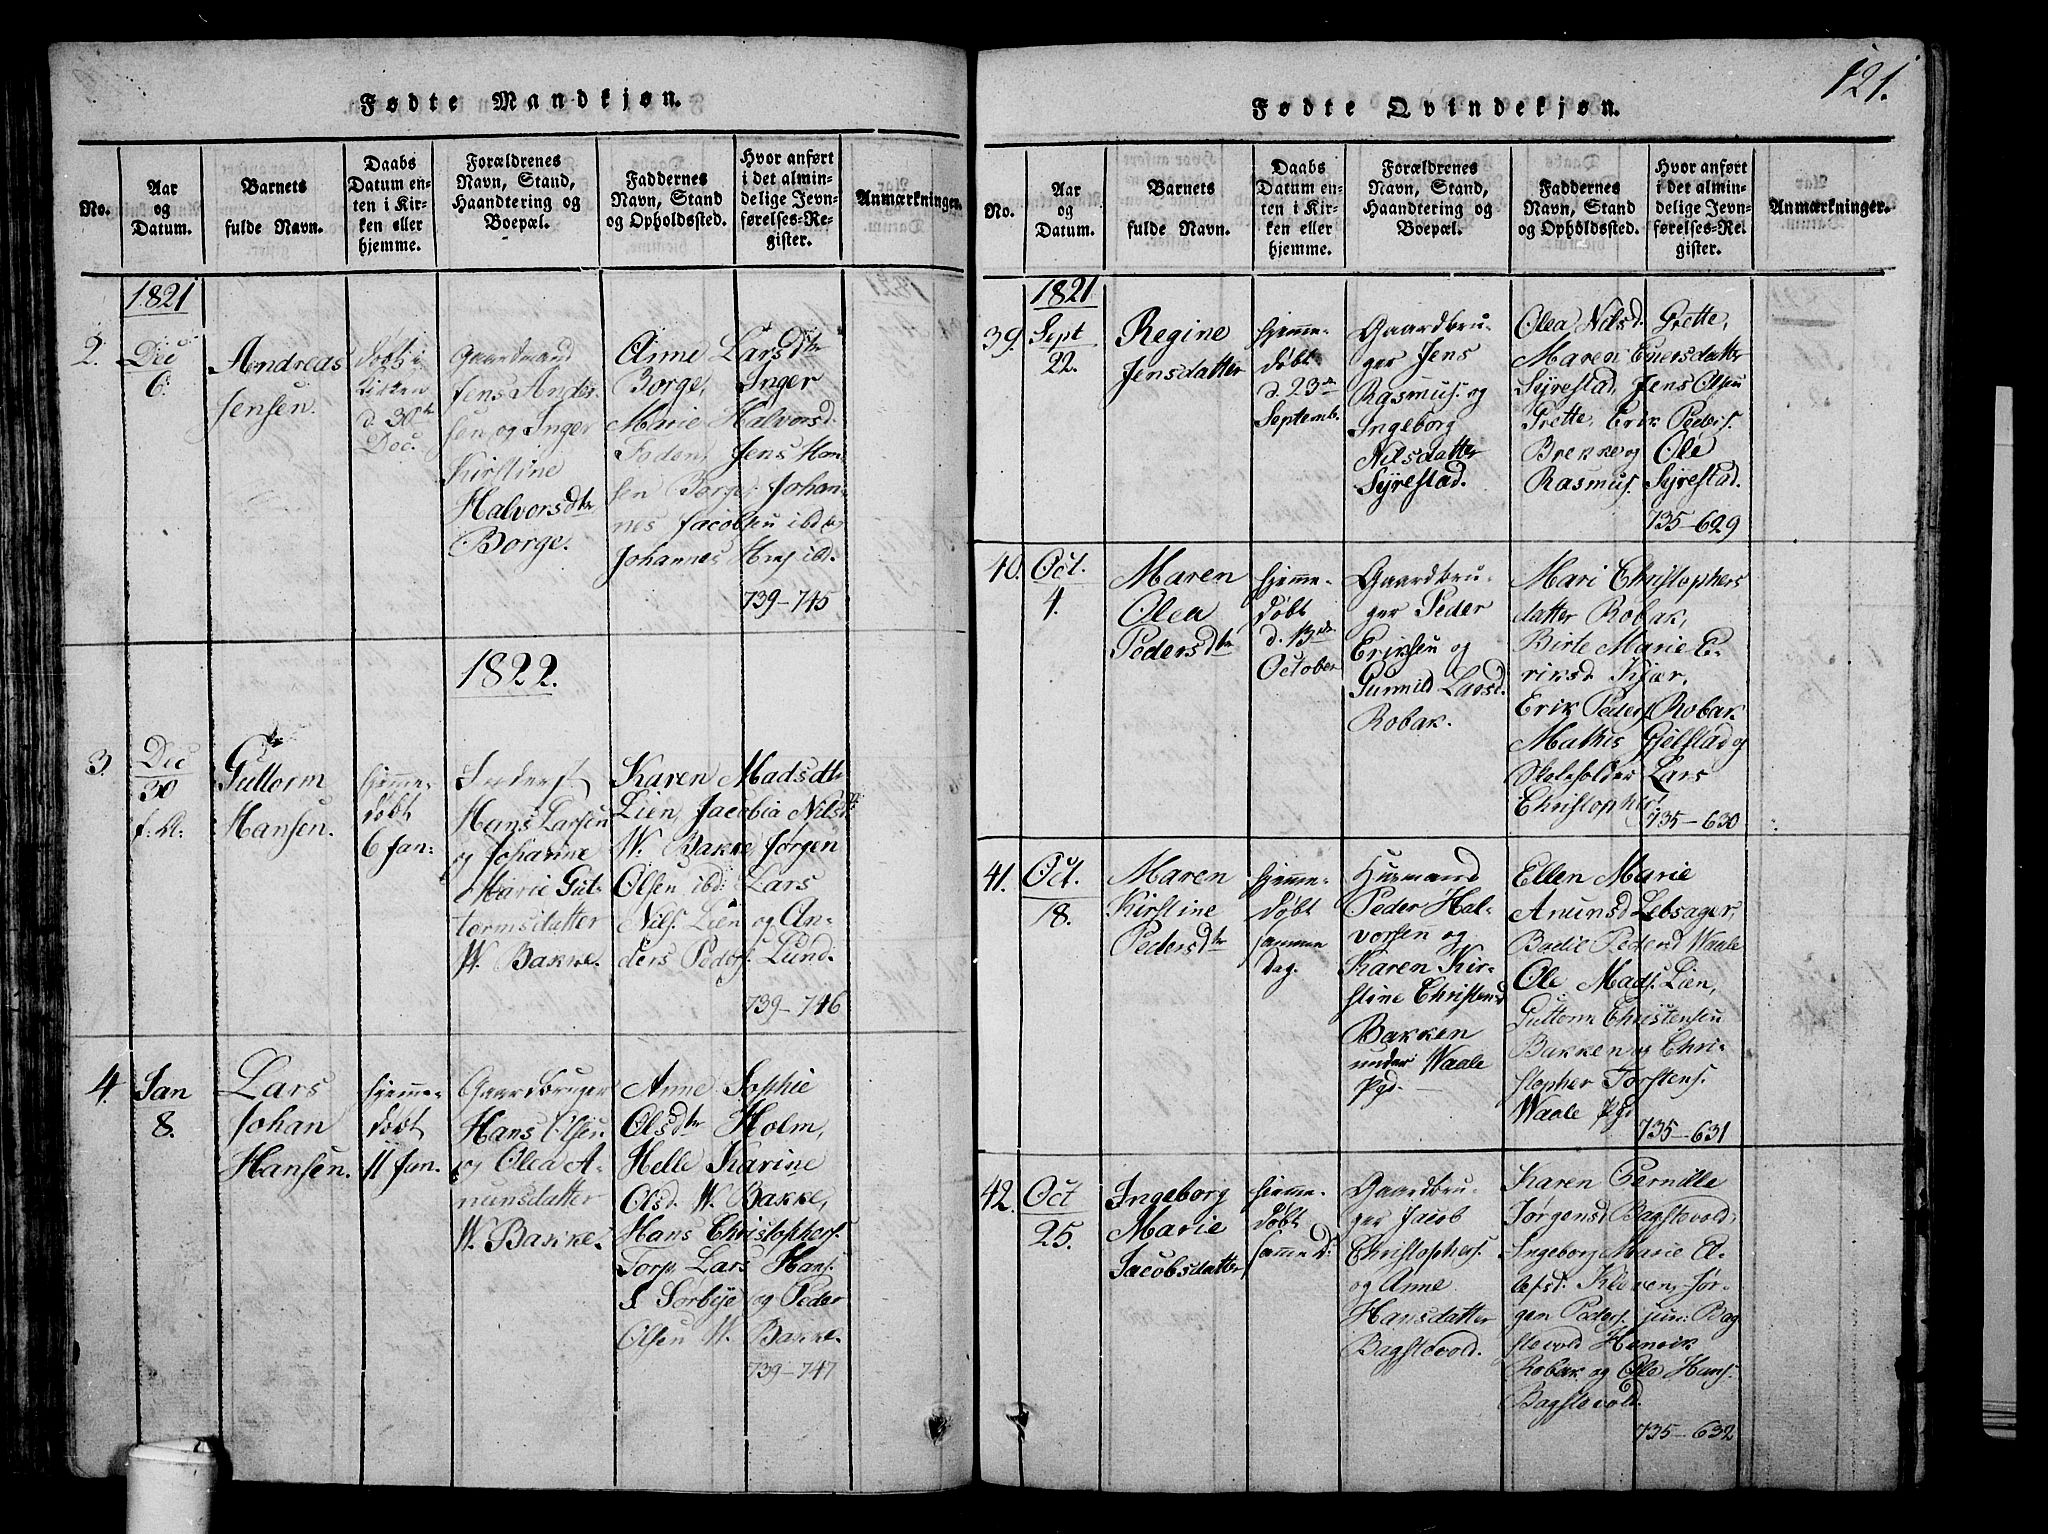 Fødte Mandkjøn.
No.
Aar
og
Datum.
Barnets
fulde Navn.
Daabs
Datum en-
ten i Kir-
ken eller
hjemme.
Forældrenes
Navn, Stand,
Haandtering og
Boepæl.
Faddernes
Navn, Stand
og Opholdssted.
Hvor anført
i det almin-
delige Jevn-
førelses-Re-
gister.
Anmærkninger.
1821
2.
Dec
6.
Andreas
Jensen.
døbt i
Kirken
d. 30te
Dec.
Gaardmand
Jens Ander-
sen og Inger
Kirstine
Halvorsdtr
Borge.
Anne Larsdtr
Borge, Inger
Marie Halvorsd.
Foden, Jens Han-
sen Borge, Johan-
nes Jacobsen ibd og
Johannes ibd.
739-745
1822.
3.
Dec
30
f: A:
Guttorm
Hansen.
hjemme-
døbt
6 Jan:
Inderst
Hans Larsen
og Johanne
Marie Gut-
tormsdatter
W. Bakke.
Karen Madsdtr
Lien, Jacobia Nilsdtr
W. Bakke, Jørgen
Olsen ibd: Lars
Nils. Lien og An-
ders Peders. Lund.
739-746
4.
Jan
8.
Lars
Johan
Hansen.
hjemme-
døbt
11 Jan.
Gaardbruger
Hans Olsen
og Olea A-
nunsdatter
W. Bakke.
Anne Sophie
Olsdtr Holm,
Helle Karine
Olsd. W. Bakke,
Hans Christophers.
Torp Lars Hans.
S. Sorbye og Peder
Olsen W. Bakke.
739-747
121.
Fødte Qvindekjøn.
No.
Aar
og
Datum.
Barnets
fulde Navn.
Daabs
Datum en-
ten i Kir-
ken eller
hjemme.
Forældrenes
Navn, Stand,
Haandtering og
Boepæl.
Faddernes
Navn, Stand
og Opholdssted.
Hvor anført
i det almin-
delige Jevn-
førelses-Re-
gister.
Anmærkninger.
1821
39.
Sept
22.
Regine
Jensdatter
hjemme-
døbt
d. 23de
Septemb.
Gaardbru-
ger Jens
Rasmus. og
Ingeborg
Nilsdatter
Syrestad.
Olea Nilsd. Grette,
Maren Enersdatter
Syrestad, Jens Olsen
Grette, Erik Peders.
Brekke og Ole
Rasmus. Syrestad.
735-629
40.
Oct.
4.
Maren
Olea
Pedersdtr
hjemme-
døbt
d. 13de
October
Gaardbru-
ger Peder
Eriksen og
Gunnild Larsd.
Robak.
Mari Christophers
datter Robak,
Birte Marie E-
riksd Kjær,
Erik Peders. Robak
Mathis Gjelstad og
Skoleholder Lars
Christophers.
735-630
41.
Oct.
18.
Maren
Kirstine
Pedersdtr
hjemme-
døbt
samme
Dag.
Husmand
Peder Hal-
vorsen og
Karen Kir-
stine Christensd
Bakken
under Waale
Pgd.
Ellen Marie
Anunsd Lebsager,
Bodil Pedersd Waale
Ole Mads. Lien,
Guttorm Christensen
Bakken og Chri-
stopher Torstens.
Waale Pgd
735-631
42.
Oct
25.
Ingeborg
Marie
Jacobsdatter
hjemme-
døbt
samme D:
Gaardbru-
ger Jacob
Christophers.
og Anne
Hansdatter
Bagstevold.
Karen Pernille
Jørgensd Bagstevold,
Ingeborg Marie O-
lefsd. Kleven, Jør-
gen Peders. jun: Bag
stevold Henrik
Robak og Ole Hans.
Bagstevold.
735-632